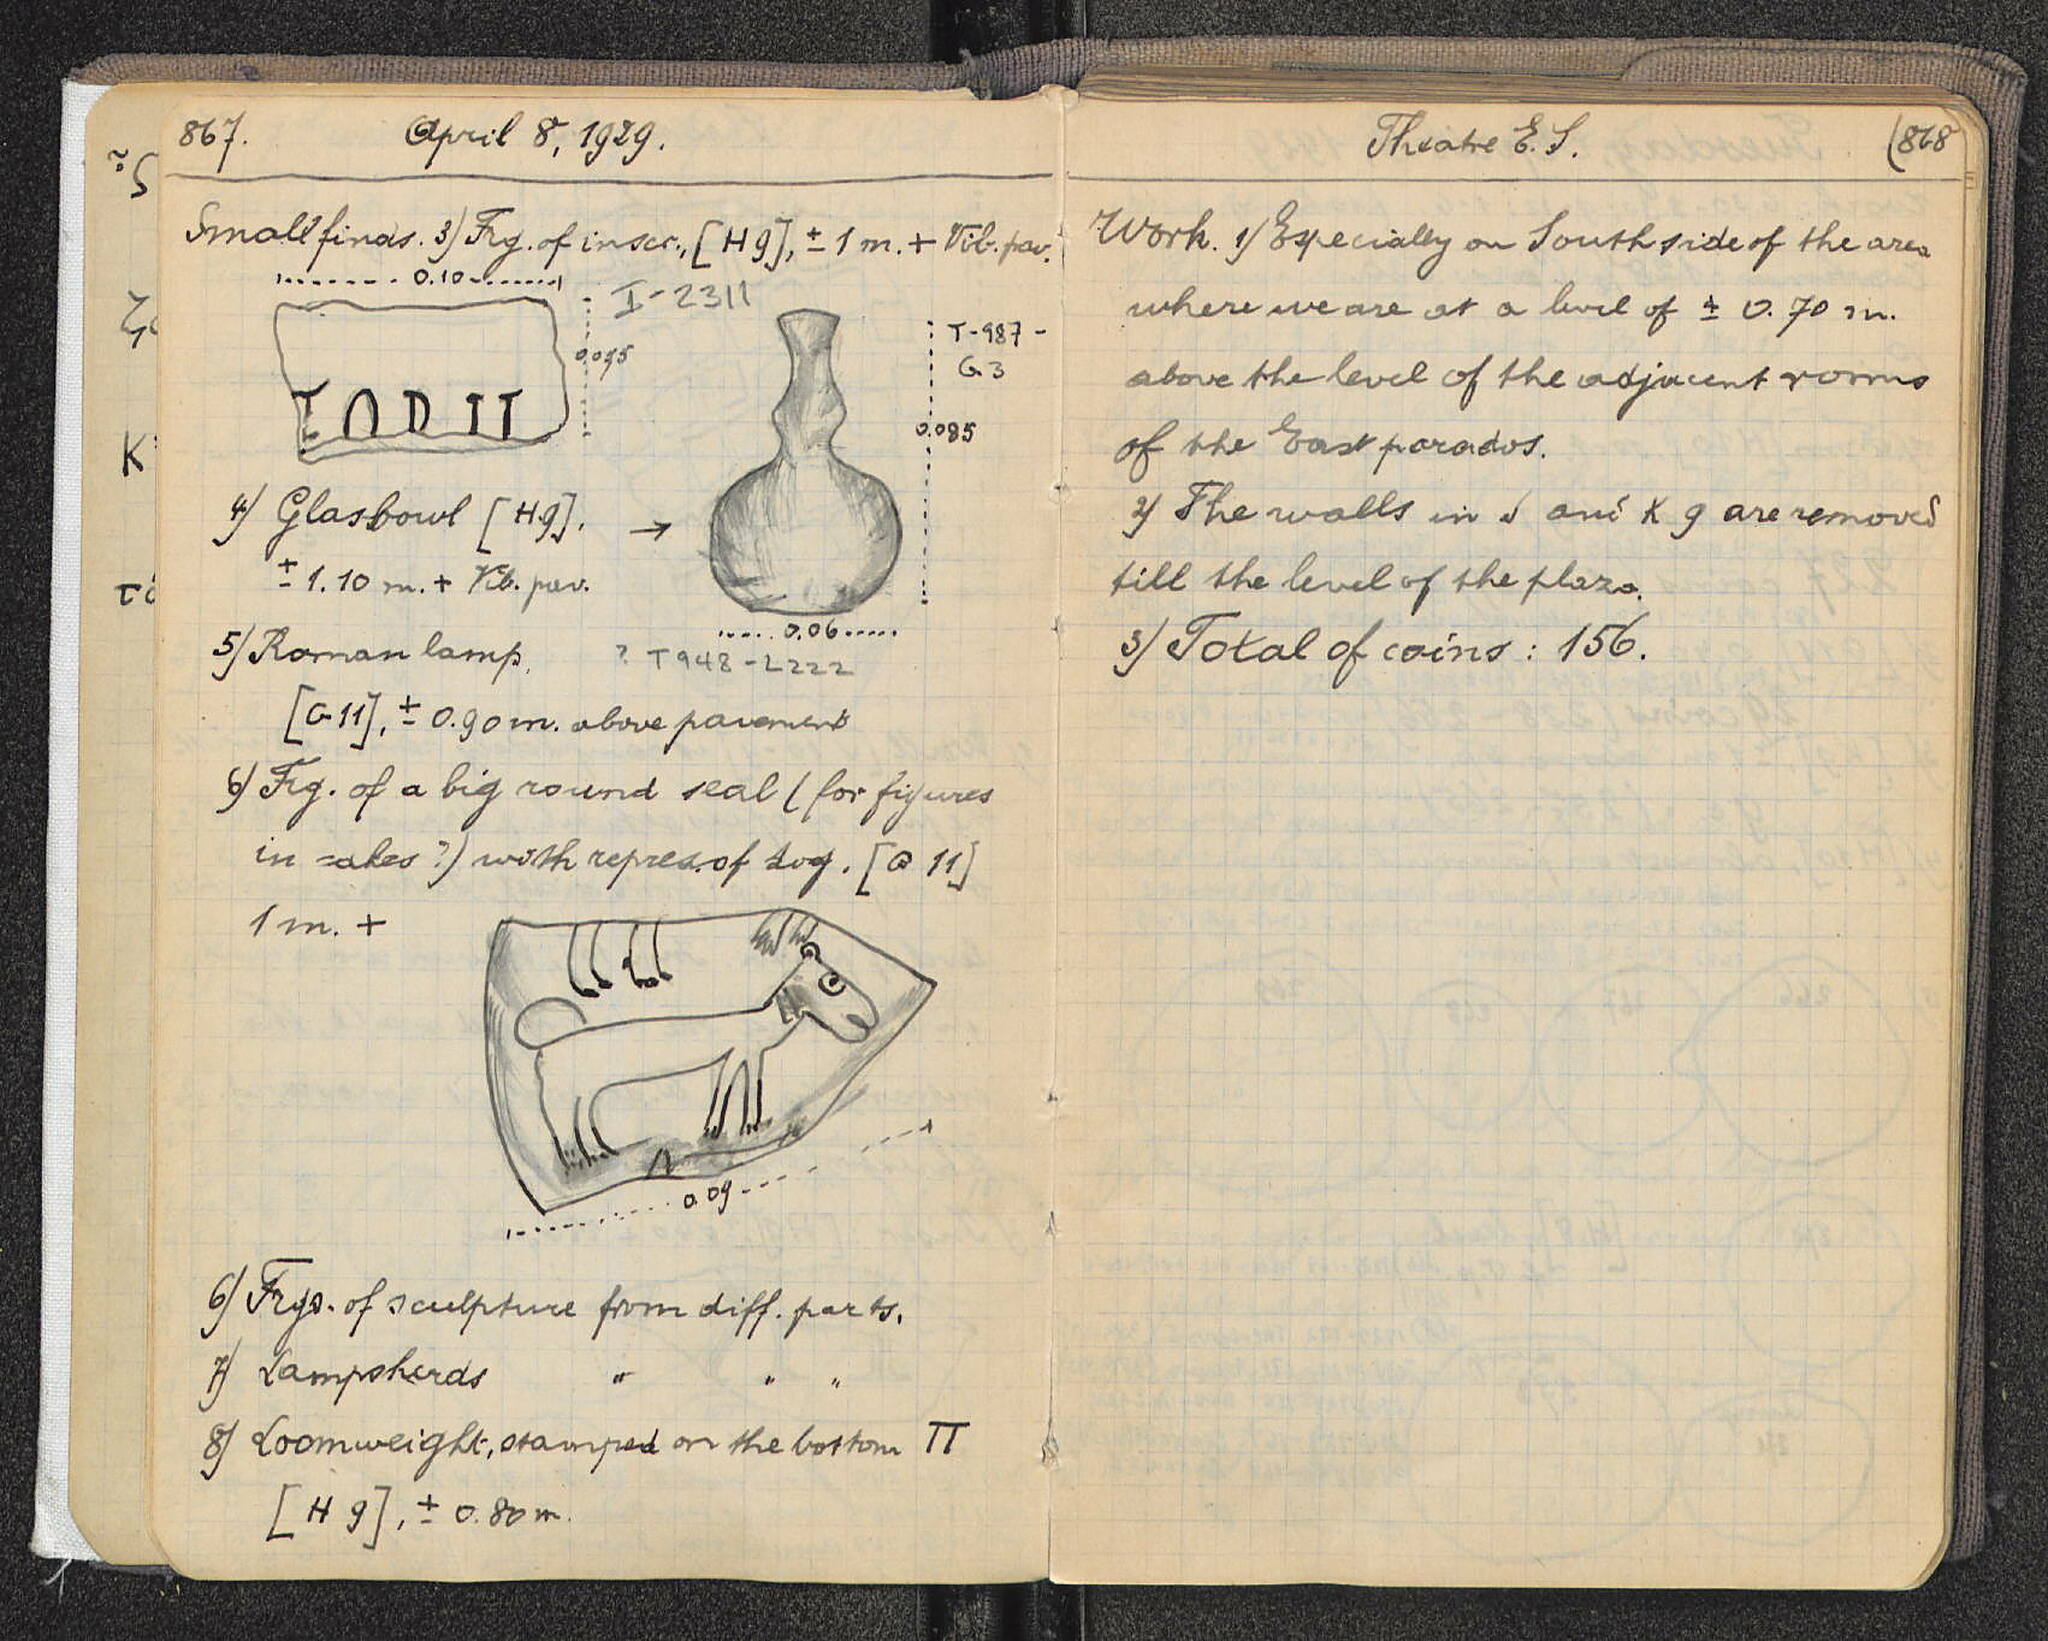 867. April 8, 1929.
Small finds. 3) Frg. of inscr., [H 9], ± 1 m. + Vib. pav.
0.10
I-2311
0.095
T-987-
G3
0.085
4) Glasbowl [H.9]. →
± 1.10 m. + Vib. pav.
0.06
5) Roman lamp. ? T948-L222
[G 11], ± 0.90 m. above pavement
6) Frg. of a big round seal (for figures
in cakes?) with repres. of dog. [G 11]
1 m. +
0.09
6) Frgs. of sculpture from diff. parts.
7) Lampsherds " " "
8) Loomweight, stamped on the bottom Π
[H 9], ± 0.80 m.
Theatre E. S. (868
Work. 1) Especially on South side of the area
where we are at a level of ± 0.70 m.
above the level of the adjacent rooms
of the East parados.
2) The walls in J and K 9 are removed
till the level of the plaza.
3) Total of coins: 156.